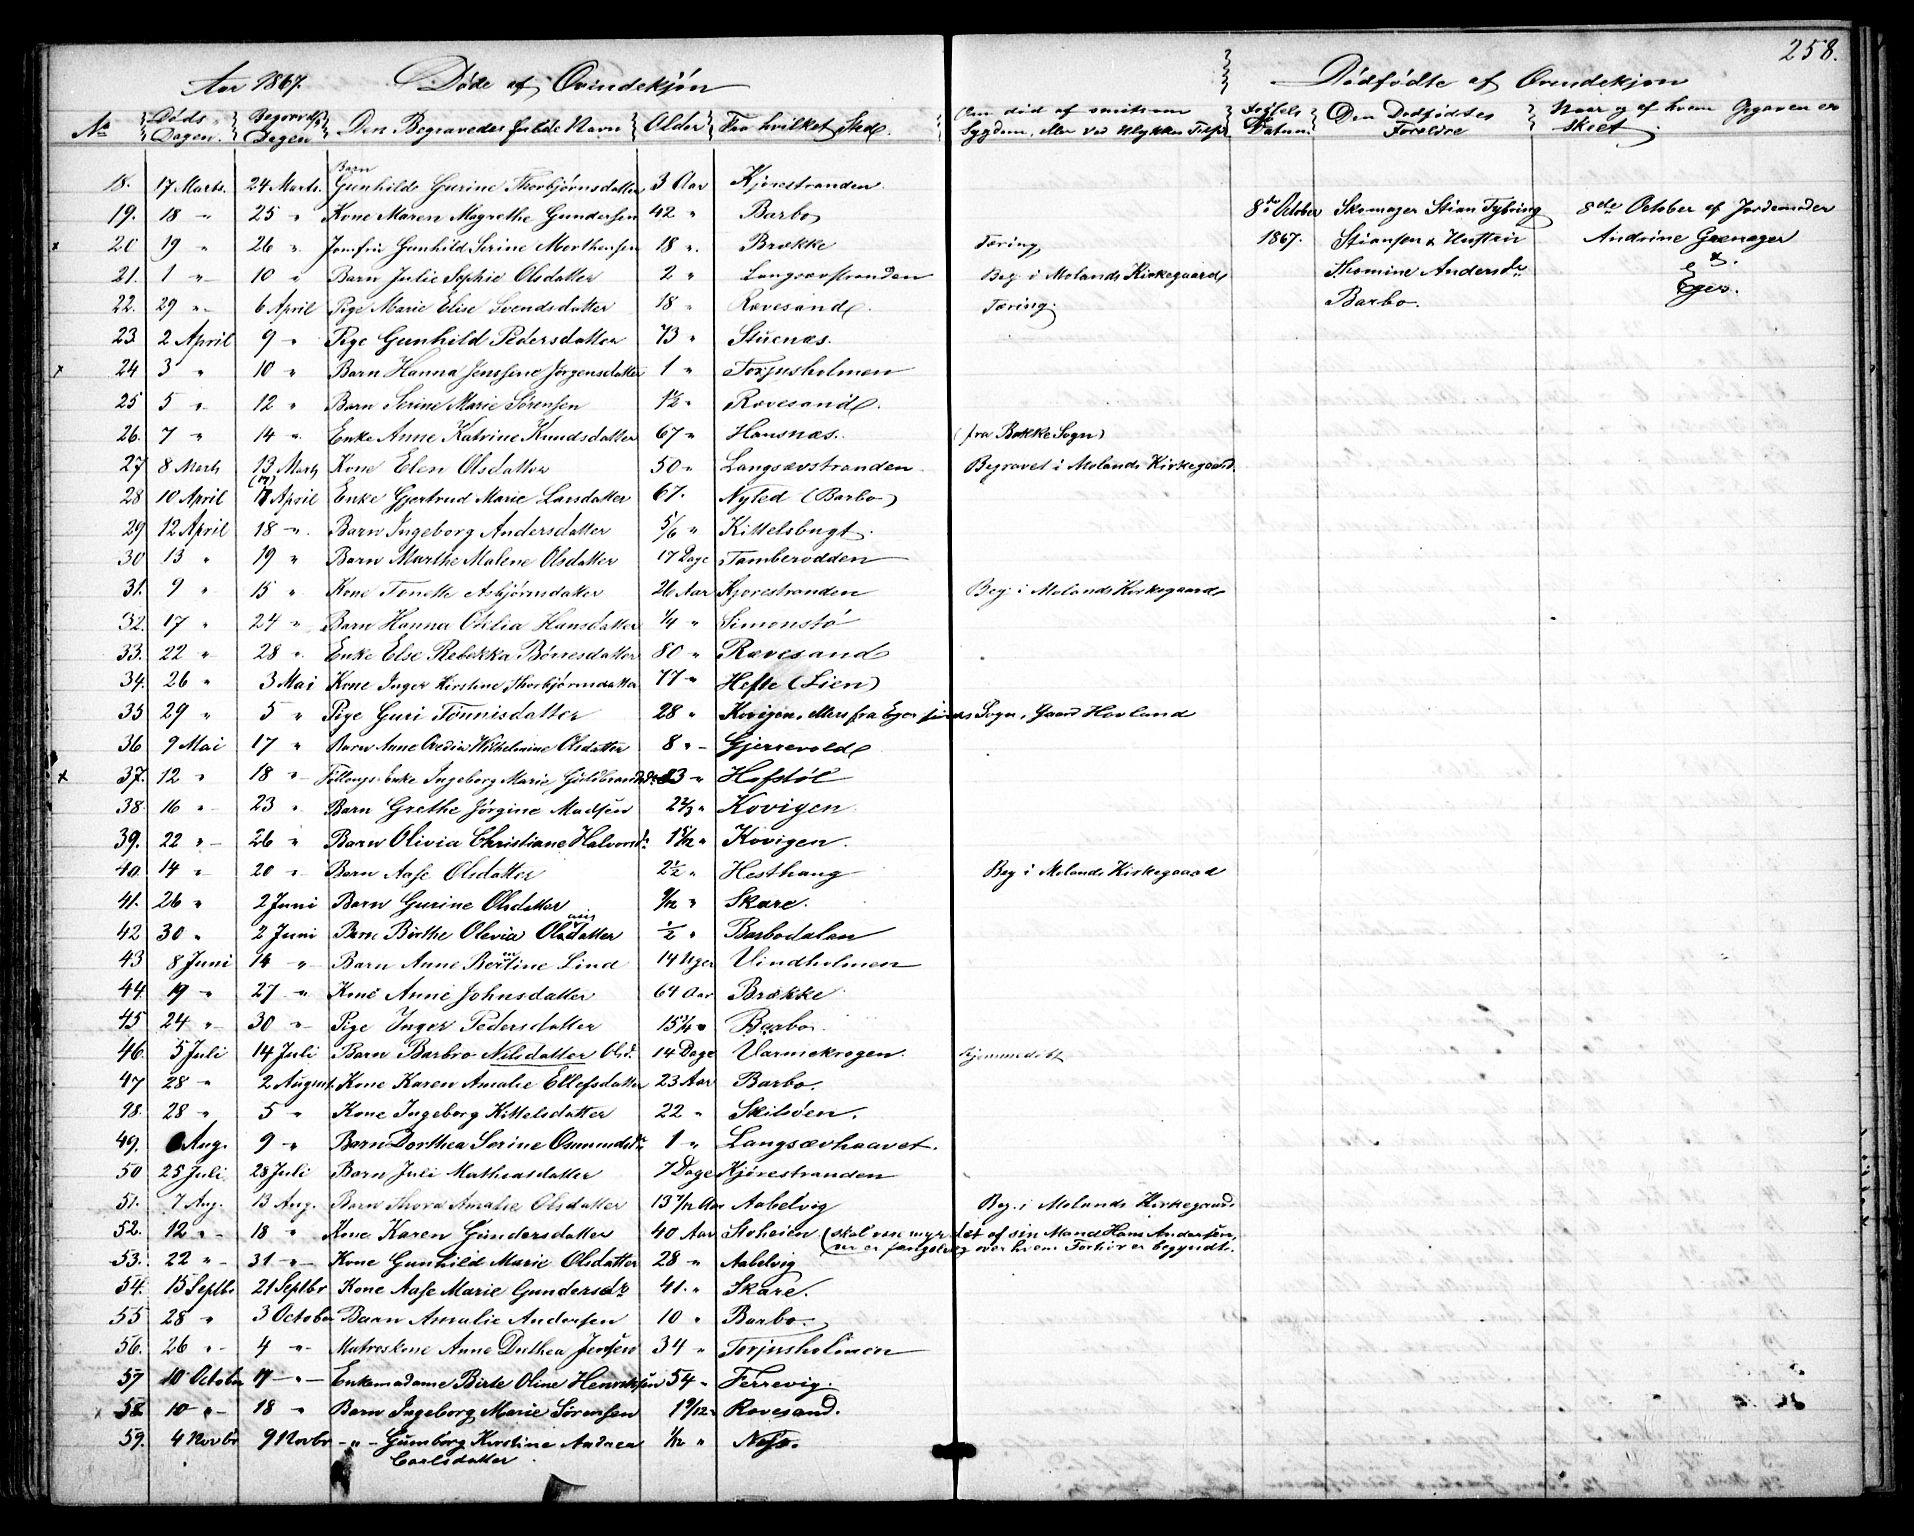 258.
Aar 1867. Døde af Qvindekjøn
Dødfødte af Qvindekjøn
No Døds-Dagen. Begravelses Dagen Den Begravedes fulde Navn Alder Fra hvilket Sted. Om død af smitsom Sygdom, eller ved Ulykkes Tilf. Fødsels Datum. Den Dødfødtes Forældre Naar og af hvem Opgaven er skeet
18. 17 Marts. 24 Marts. Barn Gunhild Gurine Thorbjørnsdatter 3 Aar Kjørestranden.
19. 18 " 25 " Kone Maren Magrethe Gundersen 42 " Barbo
8de October Skomager Stian Tybring 8de October af Jordemoder
x 20 19 " 26 " Jomfru Gunhild Serine Morthensen 18 " Brække Tæring
1867. Stiansen & Hustru Andrine Grenager
21. 1 " 10 " Barn Julie Sophie Olsdatter 2 " Langsævstranden Beg. i Molands Kirkegaard
Thomine Andersdr
22. 29 " 6 April Pige Marie Elise Svendsdatter 18 " Rævesand. Tæring.
Barbo.
23 2 April 9 " Pige Gunhild Pedersdatter 73 " Stuenæs.
x 24 3 " 10 " Barn Hanna Jensine Jørgensdatter 1 " Torjusholmen
25 5 " 12 " Barn Serine Marie Sørensen 1½ " Rævesand.
26. 7 " 14 " Enke Anne Katrine Knudsdatter 67 " Hansnæs. (fra Bakke Sogn)
27 8 Marts 13 Marts Kone Elen Olsdatter 50 " Langsævstranden Begravet i Molands Kirkegaard.
28 10 April (17) 17 April Enke Gjertrud Marie Larsdatter 67. Nyled (Barbo)
29 12 April 18 " Barn Ingeborg Andersdatter 5/6 " Kittelsbugt.
30 13 " 19 " Barn Marthe Malene Olsdatter 17 Dage Tamberodden
31. 9 " 15 " Kone Tonette Asbjørnsdatter 26 Aar Kjørestranden Beg. i Molands Kirkegaard
32. 17 " 24 " Barn Hanna Otilia Hansdatter ¼ " Simonstø
33. 22 " 28 " Enke Else Rebekka Børresdatter 80 " Rævesand
34. 26 " 3 Mai Kone Inger Kirstine Thorbjørnsdatter 77 " Hefte (Lien)
35 29 " 5 " Pige Guri Tønnisdatter 28 " Kovigen, ellers fra Egersunds Sogn, Gaard Hovland
36 9 Mai 17 " Barn Anne Wilhelmine Olsdatter 8 " Gjerrevold
x 37. 12 " 18 " Enke Ingeborg Marie 83 " Hofstøl
38. 16 " 23 " Barn Grethe Jørgine Madsen 2⅔ " Kovigen
39. 22 " 26 " Barn Olivia Christiane Halvorsd. 1 5/12 " Kovigen.
40. 14 " 20 " Barn Aase Olsdatter 2½ " Hesthaug Beg i Molands Kirkegaard
41. 26 " 2 Juni Barn Gurine Olsdatter 9/12 " Skare.
42 30 " 2 Juni Barn Birthe Olevia Olsdatter ½ " Barbodalen
43 8 Juni 14 " Barn Anne Bertine Lind 14 Uger Vindholmen
44. 19 " 27 " Kone Anne Johnsdatter 64 Aar Brække
45 24 " 30 " Pige Inger Pedersdatter 15¾ " Barbo
46. 5 Juli 14 Juli Barn Barbro Nilsdatter Olsd. 14 Dage Varmekrogen. hjemmedøbt
47 28 " 2 August. Kone Karen Amalie Ellefsdatter 23 Aar Barbo.
48. 28 " 5 " Kone Ingeborg Kittelsdatter 22 " Skilsøen.
49. 6 Aug. 9 " Barn Dorthea Serine Osmundsd. 1 " Langsævhaavet.
50 25 Juli 28 Juli Barn Juli Mathiasdatter 7 Dage Kjørestranden
51. 7 Aug. 13 Aug. Barn Thora Amalie Olsdatter 13 7/12 Aar Aabelvig Beg. i Molands Kirkegaard
52. 12 " 18 " Kone Karen Gundersdatter 40 Aar Stoheien (skal være myrdet af sin Mand Hans Andersen,
nu er fængslig over hvem Forhør er begyndt.
53. 22 " 31 " Kone Gunhild Marie Olsdatter 28 " Aabelvig
54. 15 Septbr 21 Septbr Kone Aase Marie Gundersdr 41. " Skare.
55 28 " 3 October Barn Amalie Andersen 10 " Barbo.
56. 26 " 4 " Matroskone Anne Duthea Jensen 34 " Torjusholmen
57 10 October 17 " Enkemadame Birte Oline Henriksen 54 " Ferrevig.
x 58 10 " 18 " Barn Ingeborg Marie Sørensen 1 9/12 " Rævesand.
59. 4 Novbr 9 Novbr " Gunborg Kirstine Andrea 1/12 " Næs.
Carlsdatter.